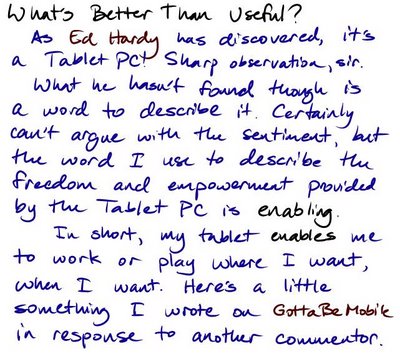 What's Better Than Useful?
As Ed Hardy has discovered, it's
a Tablet PC! Sharp observation, sir.
What he hasn't found though is
a word to describe it. Certainly
can't argue with the sentiment, but
the word I use to describe the
freedom and empowerment provided
by the Tablet PC is enabling.
In short, my tablet enables me
to work or play where I want,
when I want. Here's a little
something I wrote on GottaBeMobile
in response to another commentor.